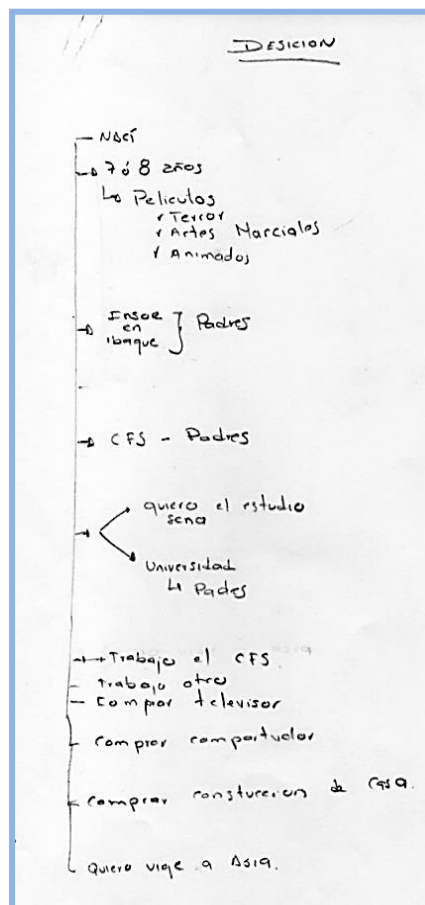 DESICION
Nací
7 ó 8 años
Peliculas
Terror
Artes Marciales
Animados
Insor
en
ibaque
Padres
CFS - Padres
quiero el estudio
sena
Universidad
Padres
Trabajo el CFS
Trabajo otro
Compar televisor
Comprar compartudor
Comprar constuccion de casa.
Quiero viaje a Asia.